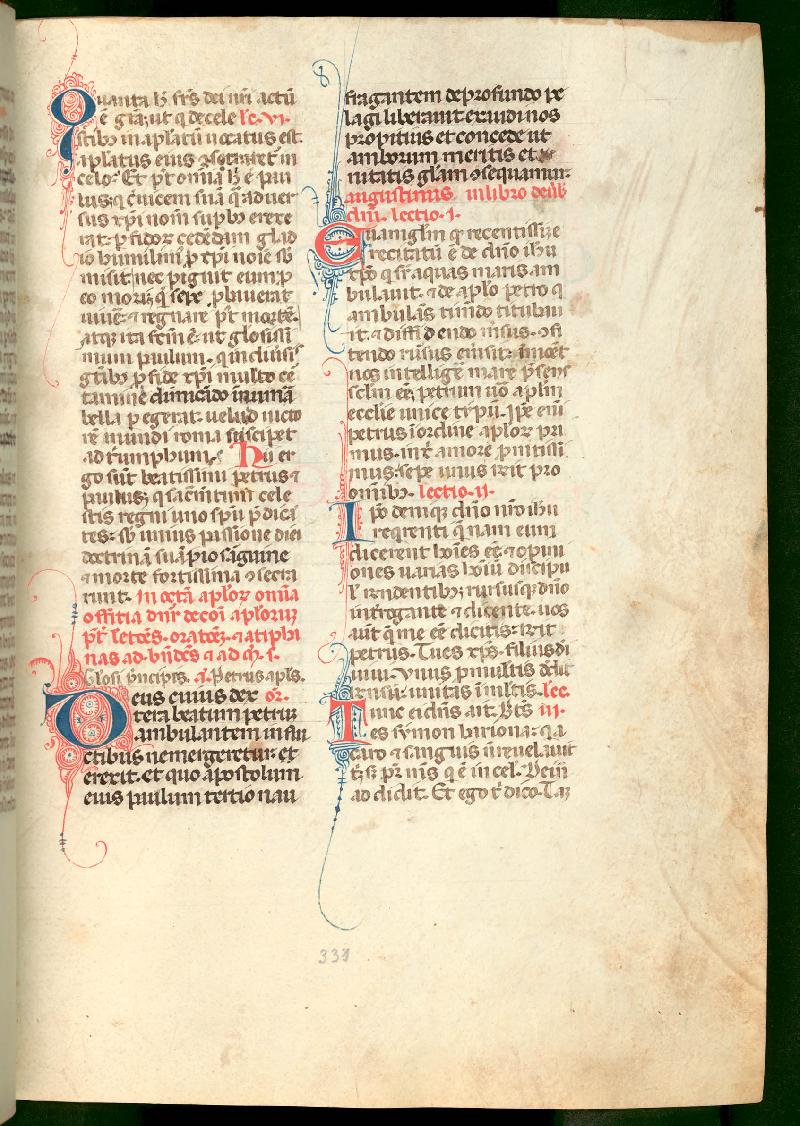 Quanta h̄ frs̄ dei n̄ri actū
ē grā, ut q de cele lc. vi.
stibꝫ in apl̄atū uocatus est.
aplatus eius ꝯsortiret in
celo. Et pꝰt omīa h̄ ē pau
lus, q ēuicem suā q aduer
sus xp̄i nom̄ supbꝫ erexe
rat, p fidoꝝ cedēdam glad
io humilim̄ p xp̄i noīe sb
misit, nec piguit eum, p
eo mori, q sepe pbauerat
uiuē, ⁊ regnare pꝰt mortē.
atqꝫ ita fcm̄ ē, ut glosissi
mum paulum, q in
p fide xp̄i multo
tamine
bella pegerat, uelud uicto
rē mundi roma suscipet
ad triumphum. Hii er
go sūt beatissimi petrus ⁊
paulus, q sac̄mtum cele
stis regni uno sp̄u p̄dicā
tes, sb unius passione diei
doctrinā suā pio sāguine
⁊ morte fortissima ꝯsecra
runt. In octā aplōꝝ omīa
offitia dn̄r de cōi apl̄orum
pꝰt letcōes, oratōeꝫ, ⁊ atipho
nas ad bn̄dcs̄ ⁊ ad m̄. i.
Glosi p̄ncipes. a. Petrus apls̄.
Deus cuius dex or.
tera beatum petrum
ambulantem in flu
ctibus ne mergeretur, er
erexit, et quo apostolum
eius paulum tertio nau
fragantem de profundo pe
lagi liberauit, exaudi nos
propitius et concede, ut
amborum meritis et
nitatis glam̄ ꝯsequamur.
Augustinus in libro de ūb
dn̄i. Lectio. i.
Euangl̄m q recentissīe
recitatū ē de dn̄o ih̄u
xp̄o q sr̄ aquas maris am
bulauit, ⁊ de aplō petro q
ambulās timdo titubau
it, ⁊ diffidendo msus, ꝯfi
tendo rūsus emsit, āmōet
nos intelligē mare p̄sens
sclm̄ eē, petrum uō aplm̄
ecclie unice tȳpū. Ip̄e eni
petrus ī ordine aplōꝝ pri
mus, in xp̄i amore pmtissi
mus, sepe unus rn̄dit pro
omībꝫ. Lectio. ii.
Ip̄o deniqꝫ dn̄o nr̄o ih̄u
xp̄o reqrenti q̄nam eum
dicerent hoīes eē, ⁊ opini
ones uarias hoīu discipu
l rn̄dentibꝫ, rursusqꝫ dn̄o
introgante ⁊ dicente, uos
aut q me eē dicitis, rn̄dit
petrus. Tu es xp̄s filius dī
uiui. Vnus p multis dedit
rn̄sum, unitas ī multis. lec.
Tunc ei dn̄s ait. Bt̄s iii.
es symon bariona, q a
caro ⁊ sanguis n̄ reuelauit
t̄, sꝫ pr̄ ms̄ q ē in cel. Dein
addidit. Et ego t̄ dico. Tāꝫ
331